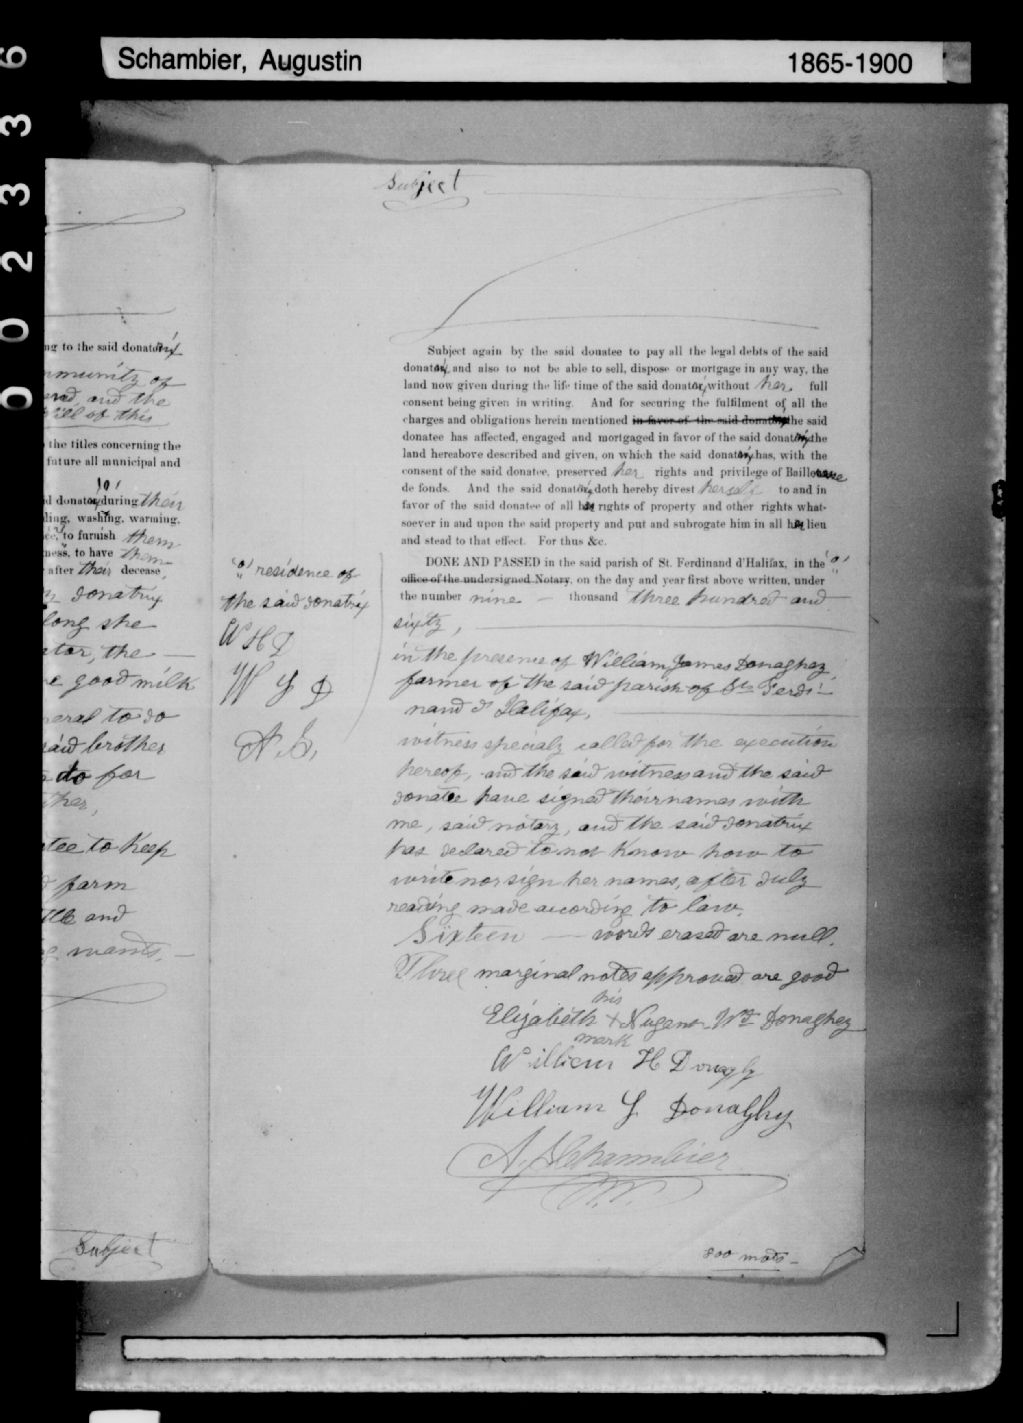 Schambier, Augustin 1865-1900
002336
ng to the said donatrix
mmunity of
and, and the
of this
the titles concerning the
future all municipal and
"o"
id donatrix, during their
ling, washing, warming,
ce, to furnish them
ness, to have them
after their decease,
donatrix
long she
ator, the —
e good milk
eral to do
said brother
to do for
ther,
tee to keep
farm
ttle and
wants. —
Subject
Subject
Subject again by the said donatee to pay all the legal debts of the said
donatrix, and also to not be able to sell, dispose or mortgage in any way, the
land now given during the life time of the said donatrix, without her full
consent being given in writing. And for securing the fulfilment of all the
charges and obligations herein mentioned in favor of the said donatrix, the said
donatee has affected, engaged and mortgaged in favor of the said donatrix, the
land hereabove described and given, on which the said donatrix, has, with the
consent of the said donatee, preserved her rights and privilege of Bailleresse
de fonds. And the said donatrix, doth hereby divest herself to and in
favor of the said donatee of all her rights of property and other rights what-
soever in and upon the said property and put and subrogate him in all her lieu
and stead to that effect. For thus &c.
DONE AND PASSED in the said parish of St. Ferdinand d'Halifax, in the "o"
office of the undersigned Notary, on the day and year first above written, under
the number nine — thousand three hundred and
sixty,
"o" residence of
the said donatrix
W H D
W J D
A. S.
in the presence of William James Donaghey,
farmer of the said parish of St. Ferdi-
nand d'Halifax,
witness specialy called for the execution
hereof, and the said witness and the said
donatee have signed their names with
me, said notary, and the said donatrix
has declared to not know how to
write nor sign her names, after duly
reading made according to law.
Sixteen — words erased are null.
Three marginal notes approved are good
his
Elizabeth + Nugent Donaghey
mark
William H Donaghy
William J Donaghy
A. Schambier
N. P.
800 mots —